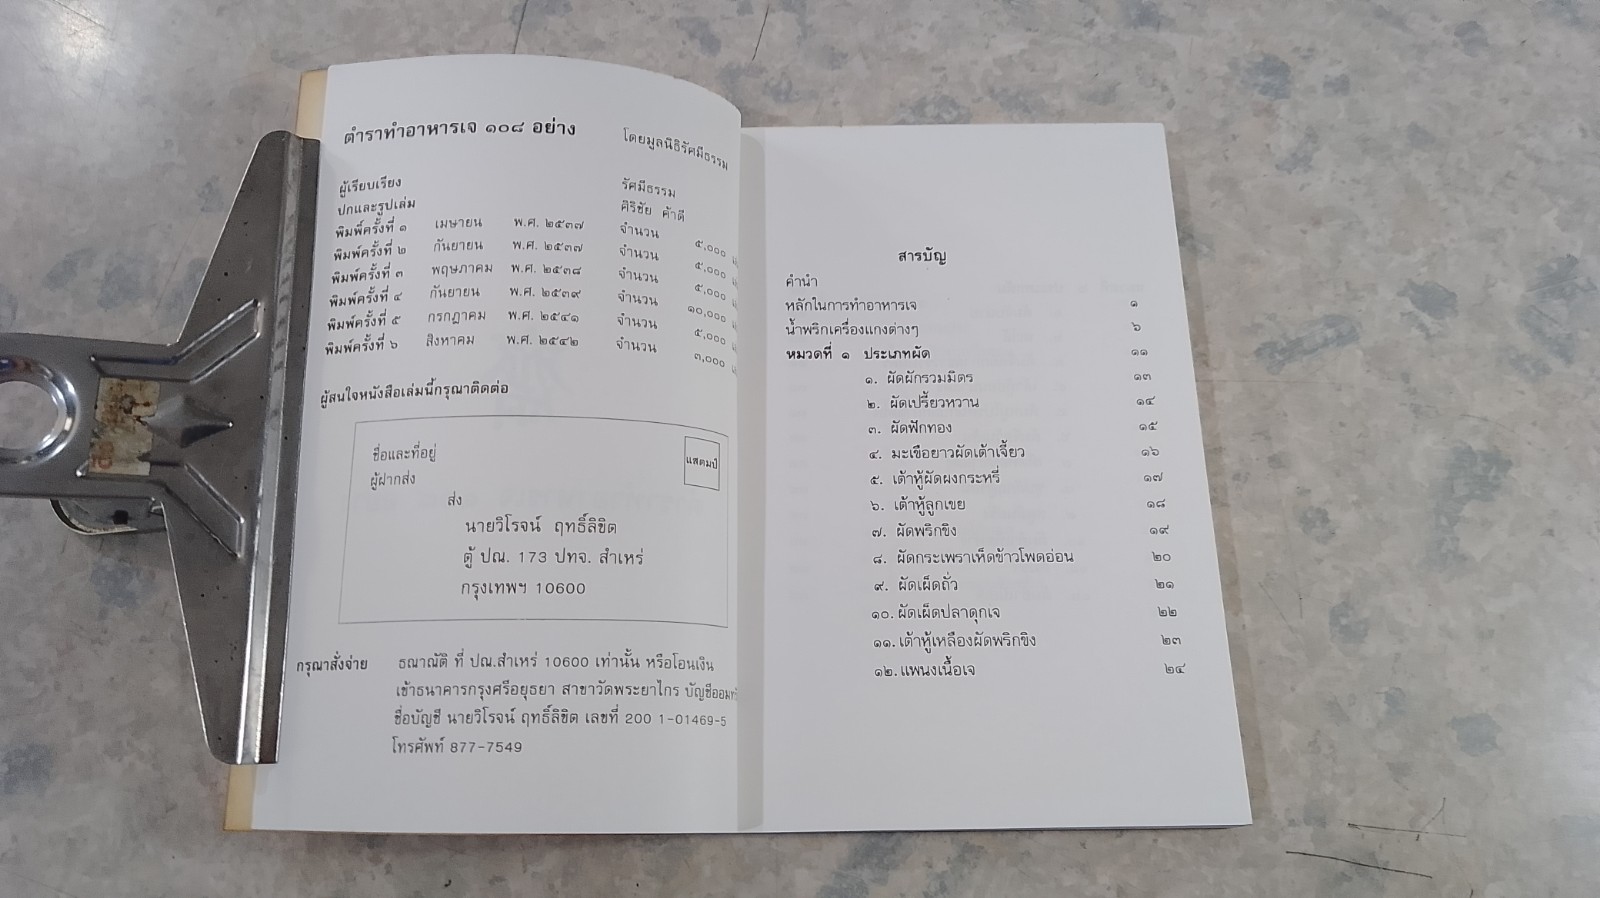 ตำราทำอาหารเจ ๑๐๘ อย่าง โดยมูลนิธิรัศมีธรรม
ผู้เรียบเรียง รัศมีธรรม
ปกและรูปเล่ม ศิริชัย ค้าดี
พิมพ์ครั้งที่ ๑ เมษายน พ.ศ. ๒๕๓๗ จำนวน ๕,๐๐๐
พิมพ์ครั้งที่ ๒ กันยายน พ.ศ. ๒๕๓๗ จำนวน ๕,๐๐๐
พิมพ์ครั้งที่ ๓ พฤษภาคม พ.ศ. ๒๕๓๘ จำนวน ๕,๐๐๐
พิมพ์ครั้งที่ ๔ กันยายน พ.ศ. ๒๕๓๙ จำนวน ๑๐,๐๐๐
พิมพ์ครั้งที่ ๕ กรกฎาคม พ.ศ. ๒๕๔๑ จำนวน ๕,๐๐๐
พิมพ์ครั้งที่ ๖ สิงหาคม พ.ศ. ๒๕๔๒ จำนวน ๓,๐๐๐
ผู้สนใจหนังสือเล่มนี้กรุณาติดต่อ
ชื่อและที่อยู่
แสตมป์
ผู้ฝากส่ง
ส่ง
นายวิโรจน์ ฤทธิ์ลิขิต
ตู้ ปณ. 173 ปทจ. สำเหร่
กรุงเทพฯ 10600
กรุณาสั่งจ่าย ธณาณัติ ที่ ปณ.สำเหร่ 10600 เท่านั้น หรือโอนเงิน
เข้าธนาคารกรุงศรีอยุธยา สาขาวัดพระยาไกร บัญชีออม
ชื่อบัญชี นายวิโรจน์ ฤทธิ์ลิขิต เลขที่ 200 1-01469-5
โทรศัพท์ 877-7549
สารบัญ
คำนำ
หลักในการทำอาหารเจ ๑
น้ำพริกเครื่องแกงต่างๆ ๖
หมวดที่ ๑ ประเภทผัด ๑๑
๑. ผัดผักรวมมิตร ๑๓
๒. ผัดเปรี้ยวหวาน ๑๔
๓. ผัดฟักทอง ๑๕
๔. มะเขือยาวผัดเต้าเจี้ยว ๑๖
๕. เต้าหู้ผัดผงกระหรี่ ๑๗
๖. เต้าหู้ลูกเขย ๑๘
๗. ผัดพริกขิง ๑๙
๘. ผัดกระเพราเห็ดข้าวโพดอ่อน ๒๐
๙. ผัดเผ็ดถั่ว ๒๑
๑๐. ผัดเผ็ดปลาดุกเจ ๒๒
๑๑. เต้าหู้เหลืองผัดพริกขิง ๒๓
๑๒. แพนงเนื้อเจ ๒๔